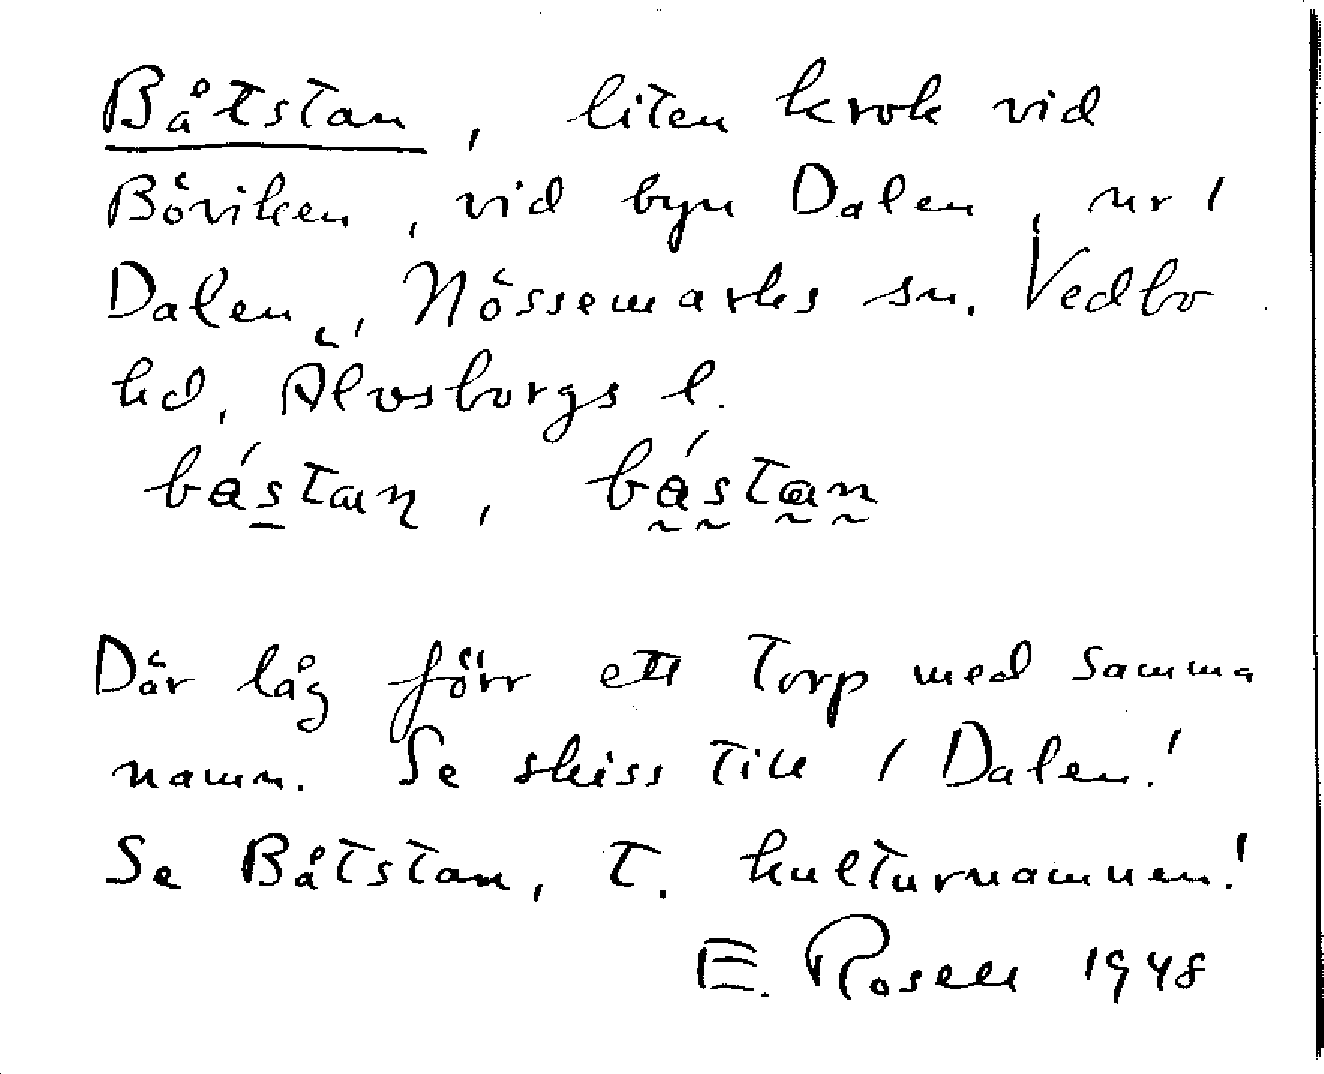 Båtstan, liten krok vid
Böviken, vid byn Dalen, nr 1
Dalen, Nössemarks sn. Vedbo
hd, Älvsborgs l.
bástan, bástan
Där låg förr ett torp med samma
namn. Se skiss till 1 Dalen!
Se Båtstan, t. kulturnamnen!
E. Rosell 1948